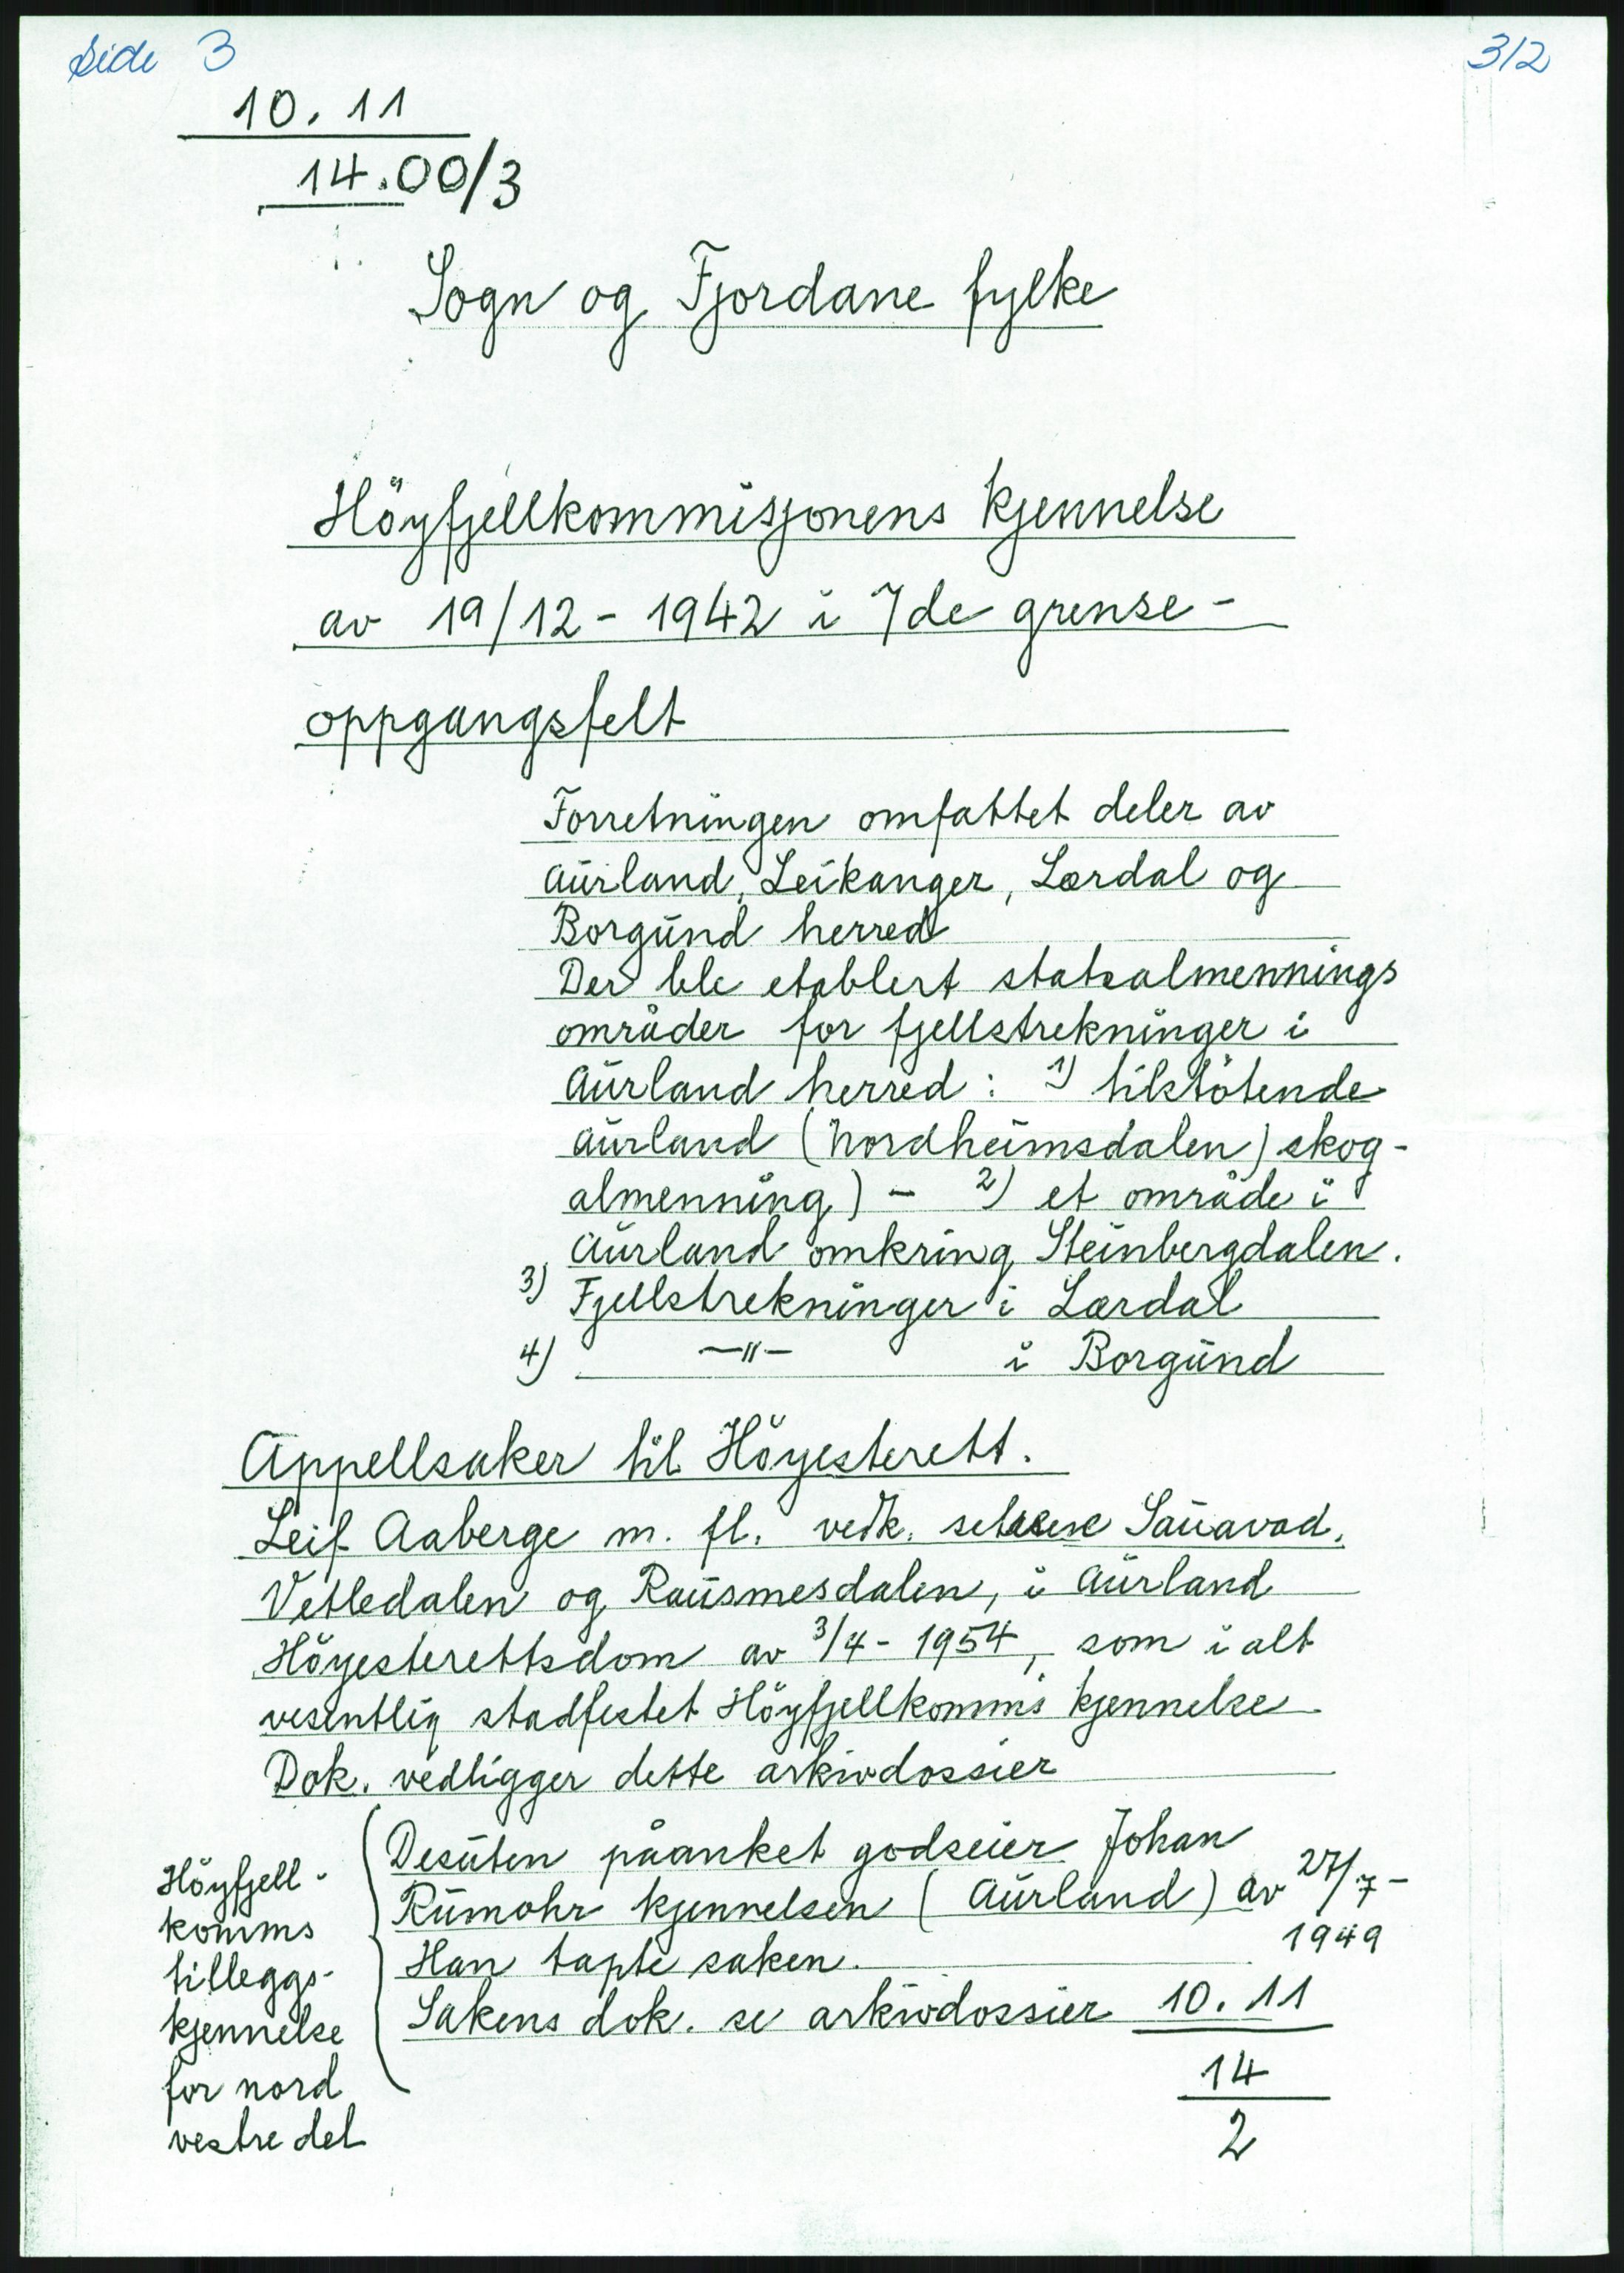 Side 3
312
10.11
14.00/3
Sogn og Fjordane fylke
Höyfjellkommisjonens kjennelse
av 19/12-1942 i 7de grense-
oppgangsfelt
Forretningen omfattet deler av
Aurland, Leikanger, Lærdal og
Borgund herred
Der ble etablert statsalmennings
områder for fjellstrekninger i
Aurland herred: 1) tilstötende
Aurland (Nordheimsdalen) skog-
almenning) - 2) et område i
Aurland omkring Steinbergdalen.
3) Fjellstrekninger i Lærdal
4) —"— i Borgund
Appellsaker til Höyesterett.
Leif Aaberge m. fl. vedk. Sauavad,
Vetledalen og Rausmesdalen, i Aurland
Höyesterettsdom av 3/4-1954, som i alt
vesentlig stadfestet Höyfjellkomms kjennelse
Dok. vedligger dette arkivdossier
Desuten påanket godseier Johan
Rumohr kjennelsen (Aurland) av 27/7-
1949
Han tapte saken.
Sakens dok. se arkivdossier 10.11
14
2
Höyfjell-
komms
tilleggs-
kjennelse
for nord
vestre del